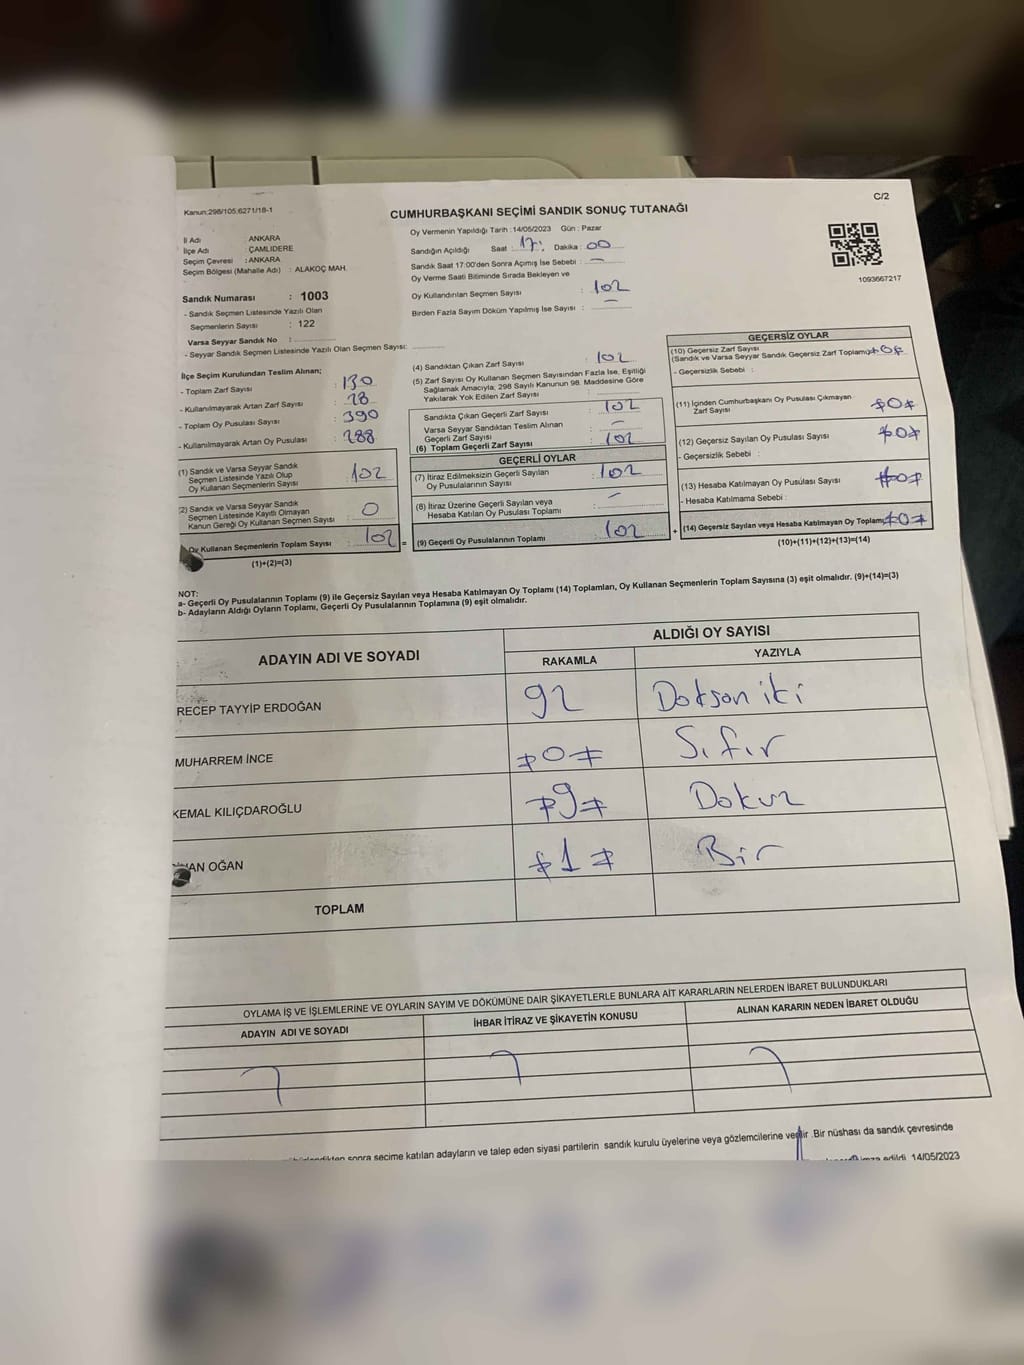 Kanun:298/105;6271/18-1
C/2
CUMHURBAŞKANI SEÇİMİ SANDIK SONUÇ TUTANAĞI
İl Adı : ANKARA
İlçe Adı : ÇAMLIDERE
Seçim Çevresi : ANKARA
Seçim Bölgesi (Mahalle Adı) : ALAKOÇ MAH.
Sandık Numarası : 1003
- Sandık Seçmen Listesinde Yazılı Olan
Seçmenlerin Sayısı : 122
Varsa Seyyar Sandık No :
- Seyyar Sandık Seçmen Listesinde Yazılı Olan Seçmen Sayısı:
Oy Vermenin Yapıldığı Tarih :14/05/2023 Gün : Pazar
Sandığın Açıldığı Saat : 17: Dakika : 00
Sandık Saat 17:00'den Sonra Açımış İse Sebebi : —
Oy Verme Saati Bitiminde Sırada Bekleyen ve
Oy Kullandırılan Seçmen Sayısı : 102
Birden Fazla Sayım Döküm Yapılmış İse Sayısı : —
1093667217
İlçe Seçim Kurulundan Teslim Alınan;
- Toplam Zarf Sayısı : 130
- Kullanılmayarak Artan Zarf Sayısı : 28
- Toplam Oy Pusulası Sayısı : 390
- Kullanılmayarak Artan Oy Pusulası : 288
(1) Sandık ve Varsa Seyyar Sandık
Seçmen Listesinde Yazılı Olup
Oy Kullanan Seçmenlerin Sayısı : 102
(2) Sandık ve Varsa Seyyar Sandık
Seçmen Listesinde Kayıtlı Olmayan
Kanun Gereği Oy Kullanan Seçmen Sayısı : 0
Oy Kullanan Seçmenlerin Toplam Sayısı : 102
(1)+(2)=(3)
(4) Sandıktan Çıkan Zarf Sayısı : 102
(5) Zarf Sayısı Oy Kullanan Seçmen Sayısından Fazla İse, Eşitliği
Sağlamak Amacıyla; 298 Sayılı Kanunun 98. Maddesine Göre
Yakılarak Yok Edilen Zarf Sayısı :
Sandıkta Çıkan Geçerli Zarf Sayısı : 102
Varsa Seyyar Sandıktan Teslim Alınan
Geçerli Zarf Sayısı : —
(6) Toplam Geçerli Zarf Sayısı : 102
GEÇERLİ OYLAR
(7) İtiraz Edilmeksizin Geçerli Sayılan
Oy Pusulalarının Sayısı : 102
(8) İtiraz Üzerine Geçerli Sayılan veya
Hesaba Katılan Oy Pusulası Toplamı : —
= (9) Geçerli Oy Pusulalarının Toplamı : 102
GEÇERSİZ OYLAR
(10) Geçersiz Zarf Sayısı
(Sandık ve Varsa Seyyar Sandık Geçersiz Zarf Toplamı) ≠0≠
- Geçersizlik Sebebi :
(11) İçinden Cumhurbaşkanı Oy Pusulası Çıkmayan
Zarf Sayısı ≠0≠
(12) Geçersiz Sayılan Oy Pusulası Sayısı ≠0≠
- Geçersizlik Sebebi :
(13) Hesaba Katılmayan Oy Pusulası Sayısı ≠0≠
- Hesaba Katılmama Sebebi :
+ (14) Geçersiz Sayılan veya Hesaba Katılmayan Oy Toplamı ≠0≠
(10)+(11)+(12)+(13)=(14)
NOT:
a- Geçerli Oy Pusulalarının Toplamı (9) ile Geçersiz Sayılan veya Hesaba Katılmayan Oy Toplamı (14) Toplamları, Oy Kullanan Seçmenlerin Toplam Sayısına (3) eşit olmalıdır. (9)+(14)=(3)
b- Adayların Aldığı Oyların Toplamı, Geçerli Oy Pusulalarının Toplamına (9) eşit olmalıdır.
ADAYIN ADI VE SOYADI
ALDIĞI OY SAYISI
RAKAMLA YAZIYLA
RECEP TAYYİP ERDOĞAN 92 Doksan iki
MUHARREM İNCE ≠0≠ Sıfır
KEMAL KILIÇDAROĞLU ≠9≠ Dokuz
OĞAN ≠1≠ Bir
TOPLAM
OYLAMA İŞ VE İŞLEMLERİNE VE OYLARIN SAYIM VE DÖKÜMÜNE DAİR ŞİKAYETLERLE BUNLARA AİT KARARLARIN NELERDEN İBARET BULUNDUKLARI
ADAYIN ADI VE SOYADI İHBAR İTİRAZ VE ŞİKAYETİN KONUSU ALINAN KARARIN NEDEN İBARET OLDUĞU
sonra seçime katılan adayların ve talep eden siyasi partilerin sandık kurulu üyelerine veya gözlemcilerine verilir .Bir nüshası da sandık çevresinde
imza edildi. 14/05/2023